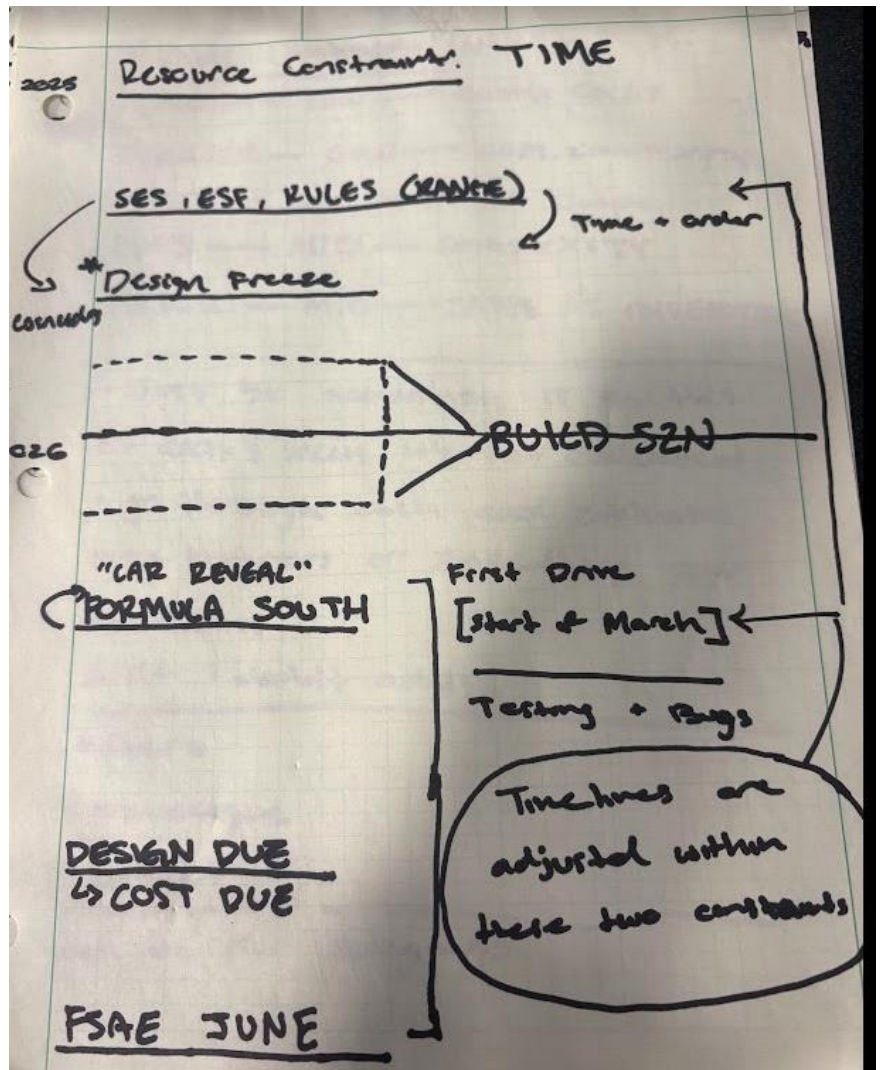 Resource Constraints: TIME
2025
SES, ESF, RULES (RANGE)
Time + order
* Design Freeze
026
BUILD SZN
"CAR REVEAL"
FORMULA SOUTH
First Drive
[start of March]
Testing + Bugs
Timelines are
adjusted within
these two constraints
DESIGN DUE
↳ COST DUE
FSAE JUNE